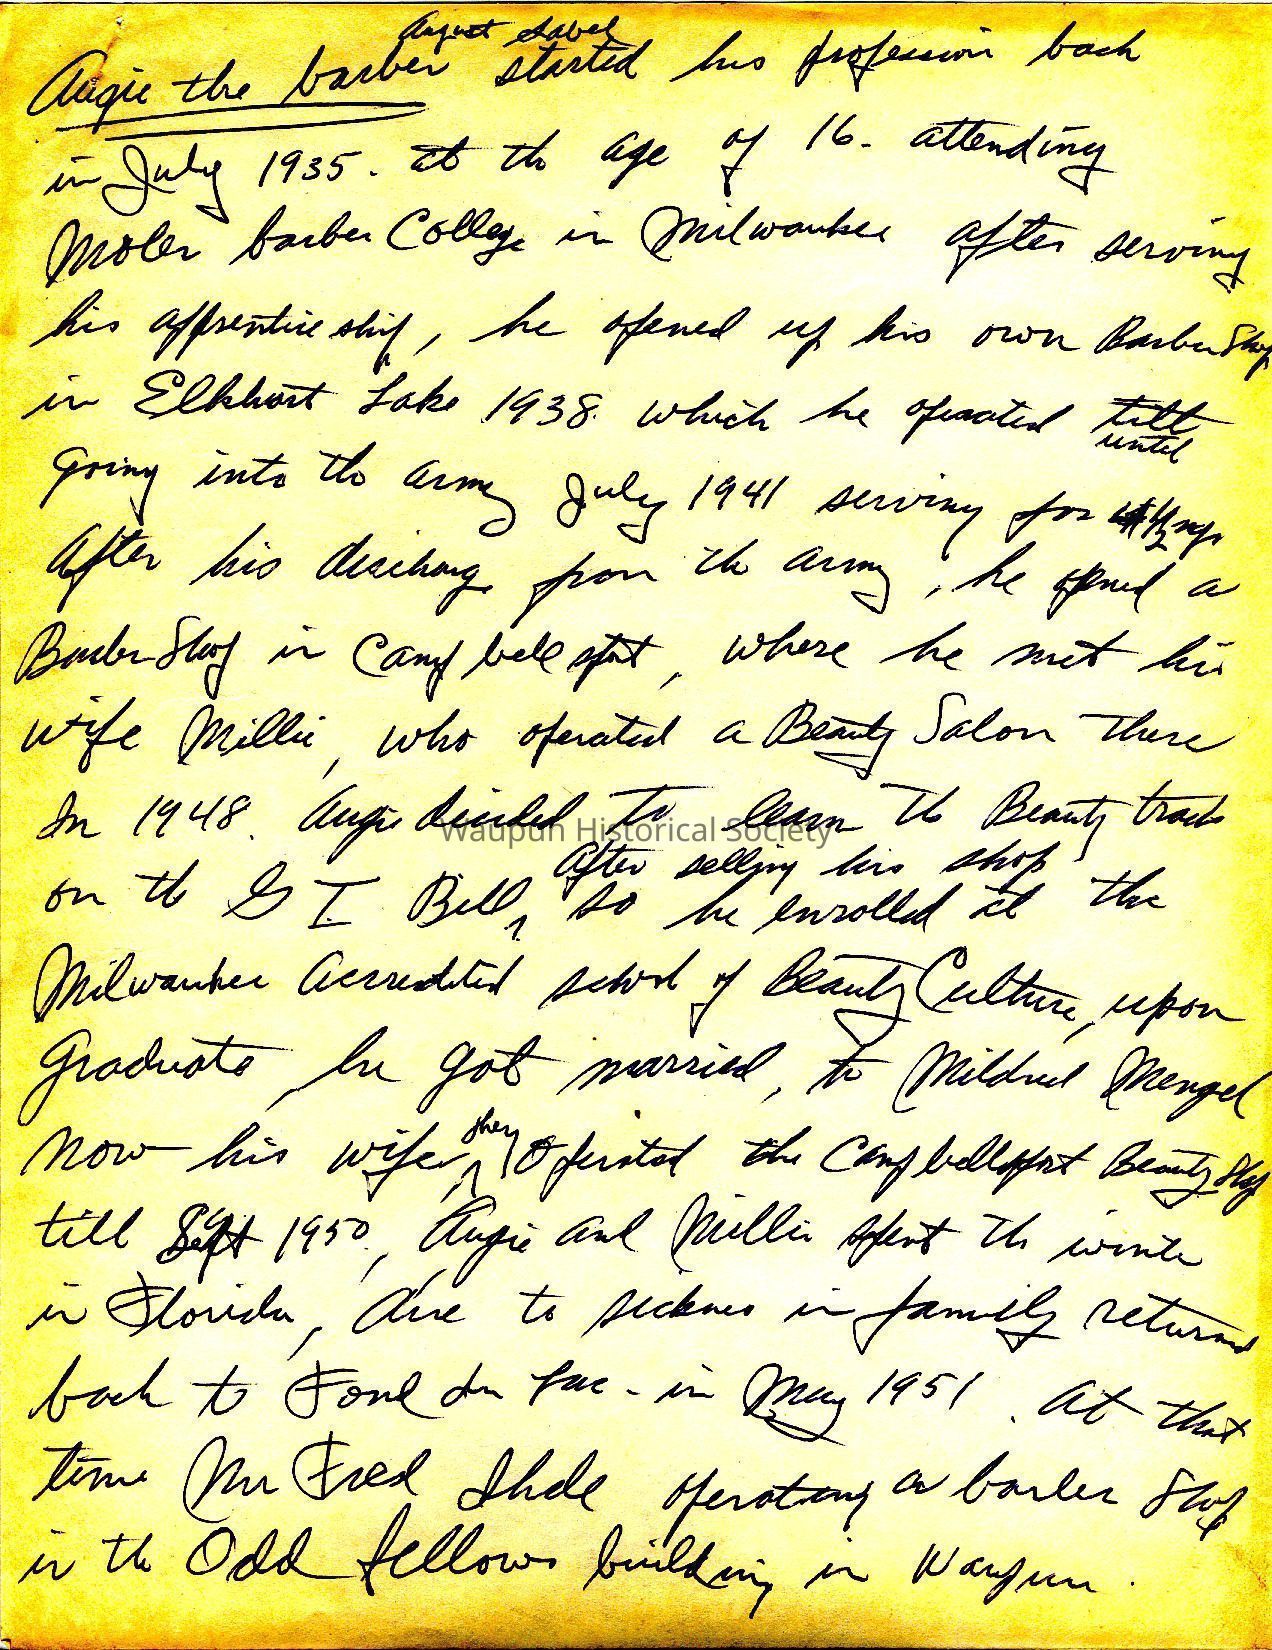 August Sabel
Augie the barber started his profession back
in July 1935. at th age of 16. attending
Moler barber College in Milwaukee after serving
his apprentice ship, he opened up his own Barber Shop
in Elkhart Lake 1938. which he operated till
until
going into th army July 1941 serving for 4 1/2 yrs
After his discharg from th army, he opened a
Barber Shop in Campbellsport, where he met his
wife Millie, who operated a Beauty Salon there
In 1948. Augie decided to learn th Beauty trade
Waupun Historical Society
after selling his shop
on th G I Bill, so he enrolled at the
Milwaukee Accredited school of Beauty Culture, upon
Graduate, he got married, to Mildred Mengel
they
Now his wife, Operated the Campbellsport Beauty Shop
till Sept 1950, Augie and Millie spent th winter
in Florida, due to sickness in family returned
back to Fond du Lac - in May 1951. At that
time Mr Fred operating a barber Shop
in th Odd fellows building in Waupun.